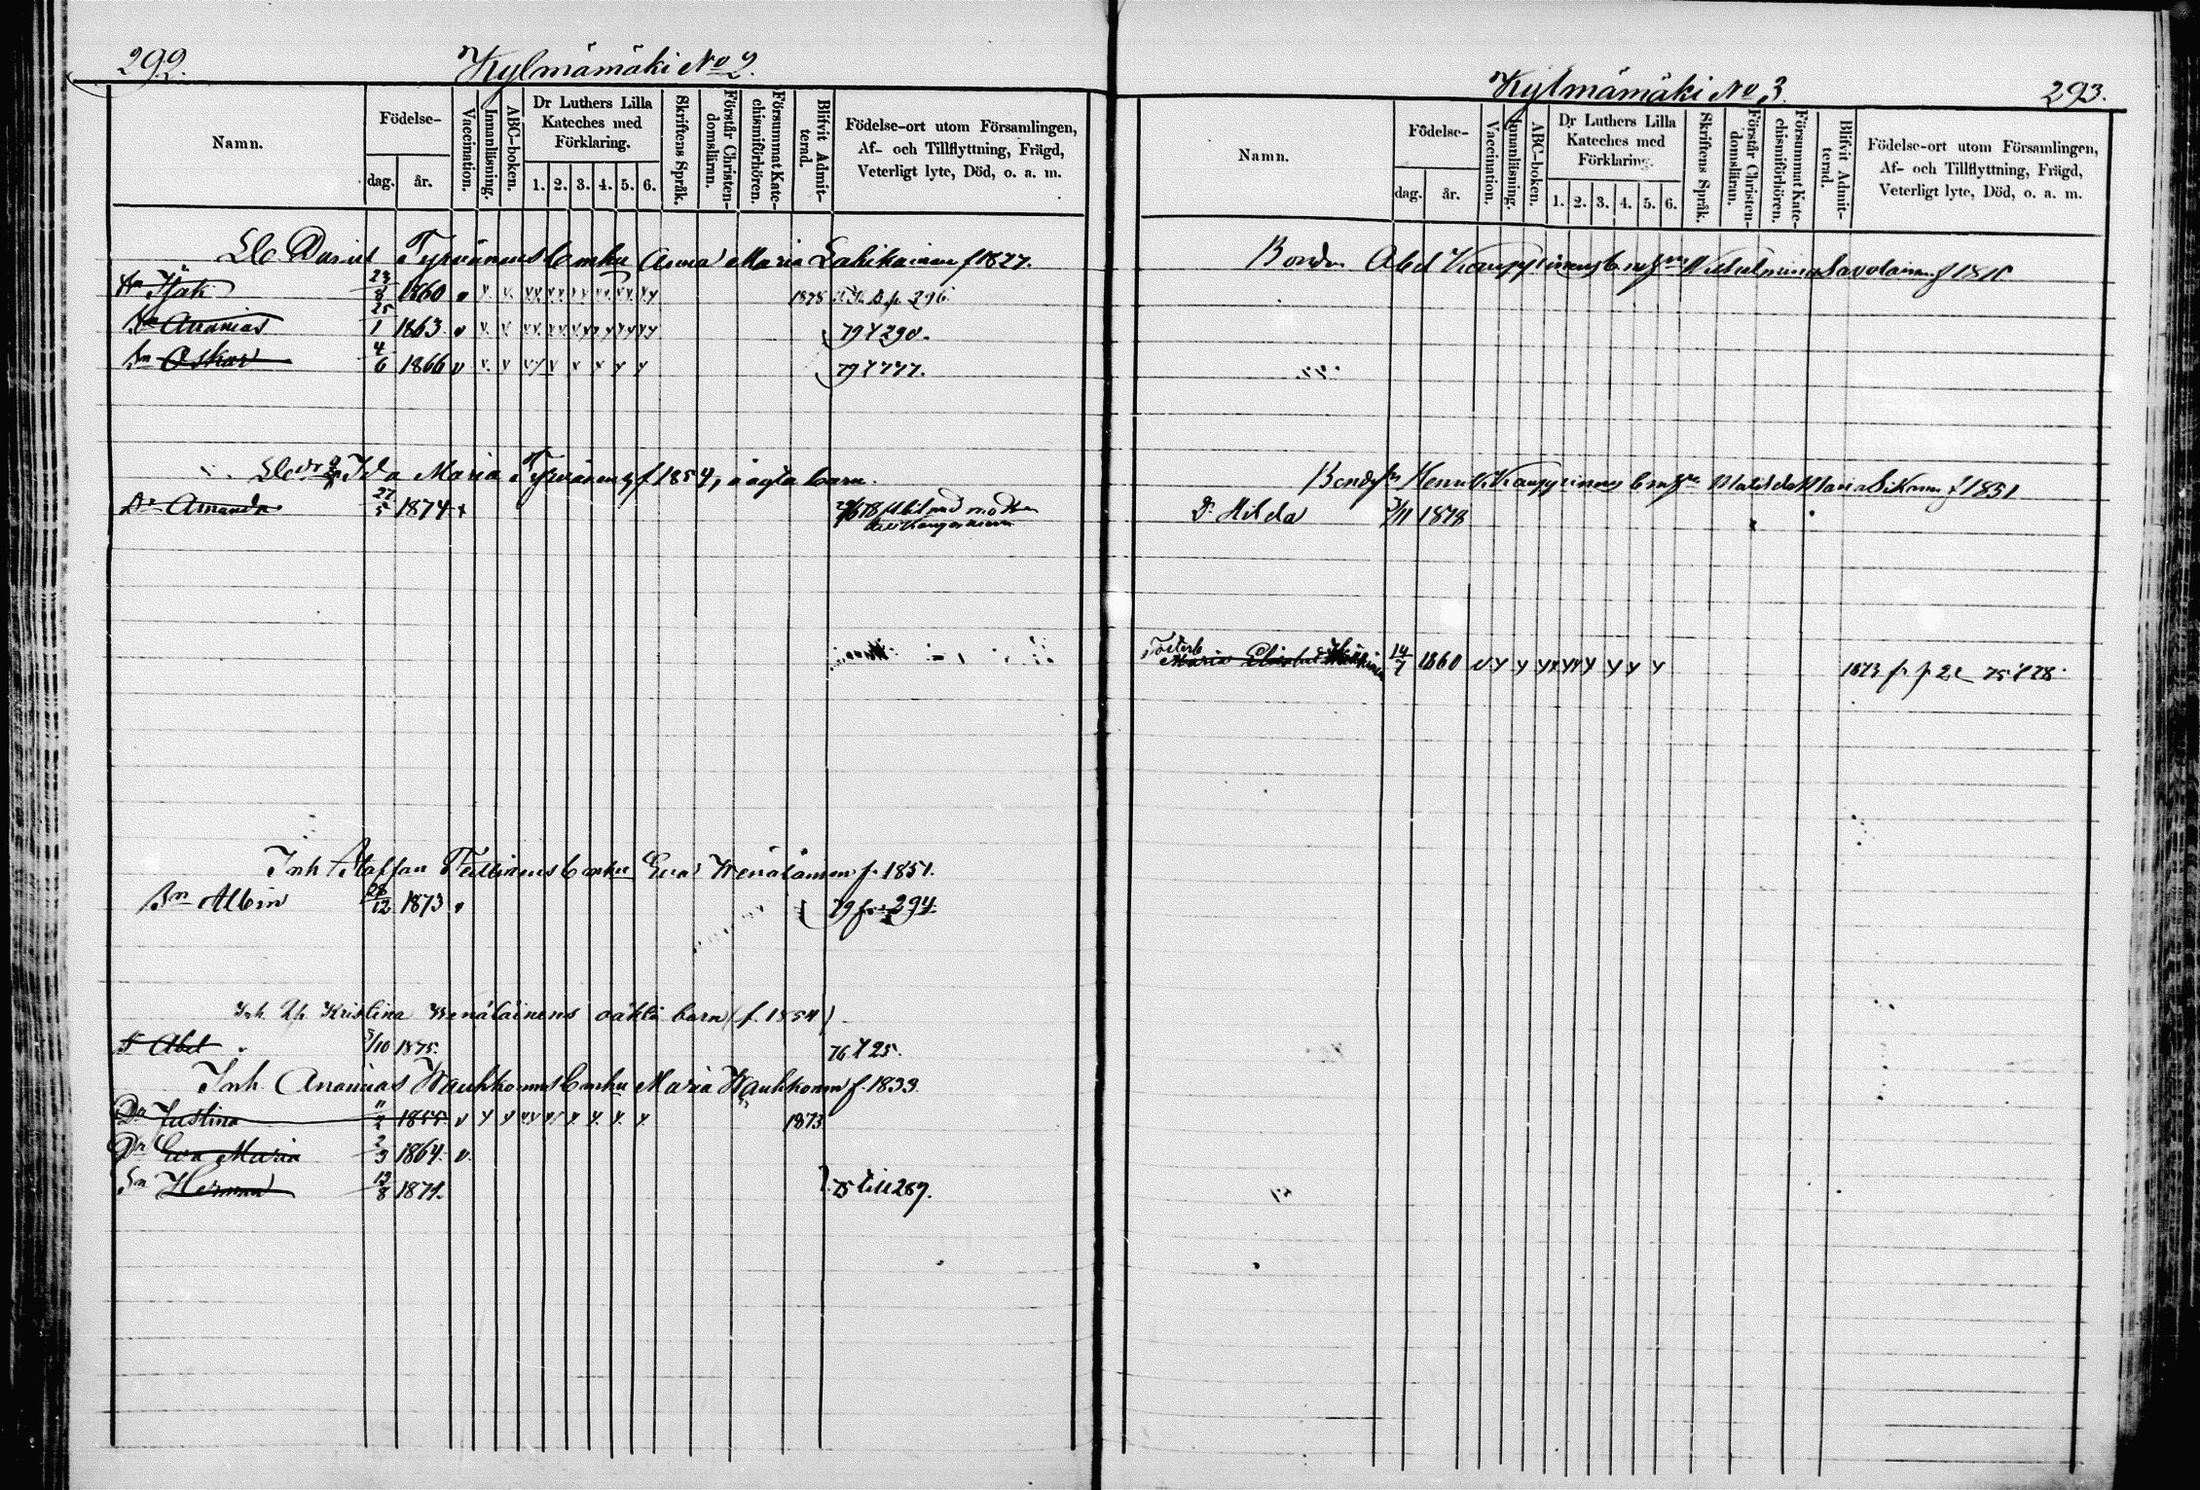 292.
Kylmämäki No 2.
Namn.
Födelse-
dag.
år.
Vaccination.
Innanläsning.
ABC-boken.
Dr Luthers Lilla
Kateches med
Förklaring.
1. 2. 3. 4. 5. 6.
Skriftens Språk.
Förstår Christen-
domsläran.
Försummat Kate-
chismiförhören.
Blifvit Admit-
terad.
Födelse-ort utom Församlingen,
Af- och Tillflyttning, Frägd,
Veterligt lyte, Död, o. a. m.
David Tyrvänens b m hu Anna Maria Lahikainen f 1827.
23/8 1860 v v. v. 1878 p. 296
Sn Ananias 25/1 1863 v v. v. 79 t 290.
Sn Oskar 4/6 1866 v v. v 79 t 777.
Ida Maria Tyrvänens f 1854, oägta barn.
Dr Amanda 27/5 1874
Inh Staffan b m hu Eva Wenäläinen f. 1851.
Sn Albin 28/12 1873 v 79 fr 294.
Inh Kristina Wenäläinens oäkta barn (f. 1854)
Abel 3/10 1875. 76 t 25.
Inh Ananias Wauhkonens b m hu Maria Wauhkonen f. 1833.
Dr Justina 11/2 1855 v 1873
Dr Eva Maria 2/3 1864. v.
Sn Herman 12/8 1871. 75 till 289.
Kylmämäki No 3.
293.
Namn.
Födelse-
dag.
år.
Vaccination.
Innanläsning.
ABC-boken.
Dr Luthers Lilla
Kateches med
Förklaring.
1. 2. 3. 4. 5. 6.
Skriftens Språk.
Förstår Christen-
domsläran.
Försummat Kate-
chismiförhören.
Blifvit Admit-
terad.
Födelse-ort utom Församlingen,
Af- och Tillflyttning, Frägd,
Veterligt lyte, Död, o. a. m.
Bonden Abel Kauppinens Wilhelmina Savolainen f
Henrik Kauppinens Matilda Maria f 1851
Dr Hilda 3/11 1878
Fosterb
Maria Elisabet 14/7 1860 1873 fr p 75 t 28.